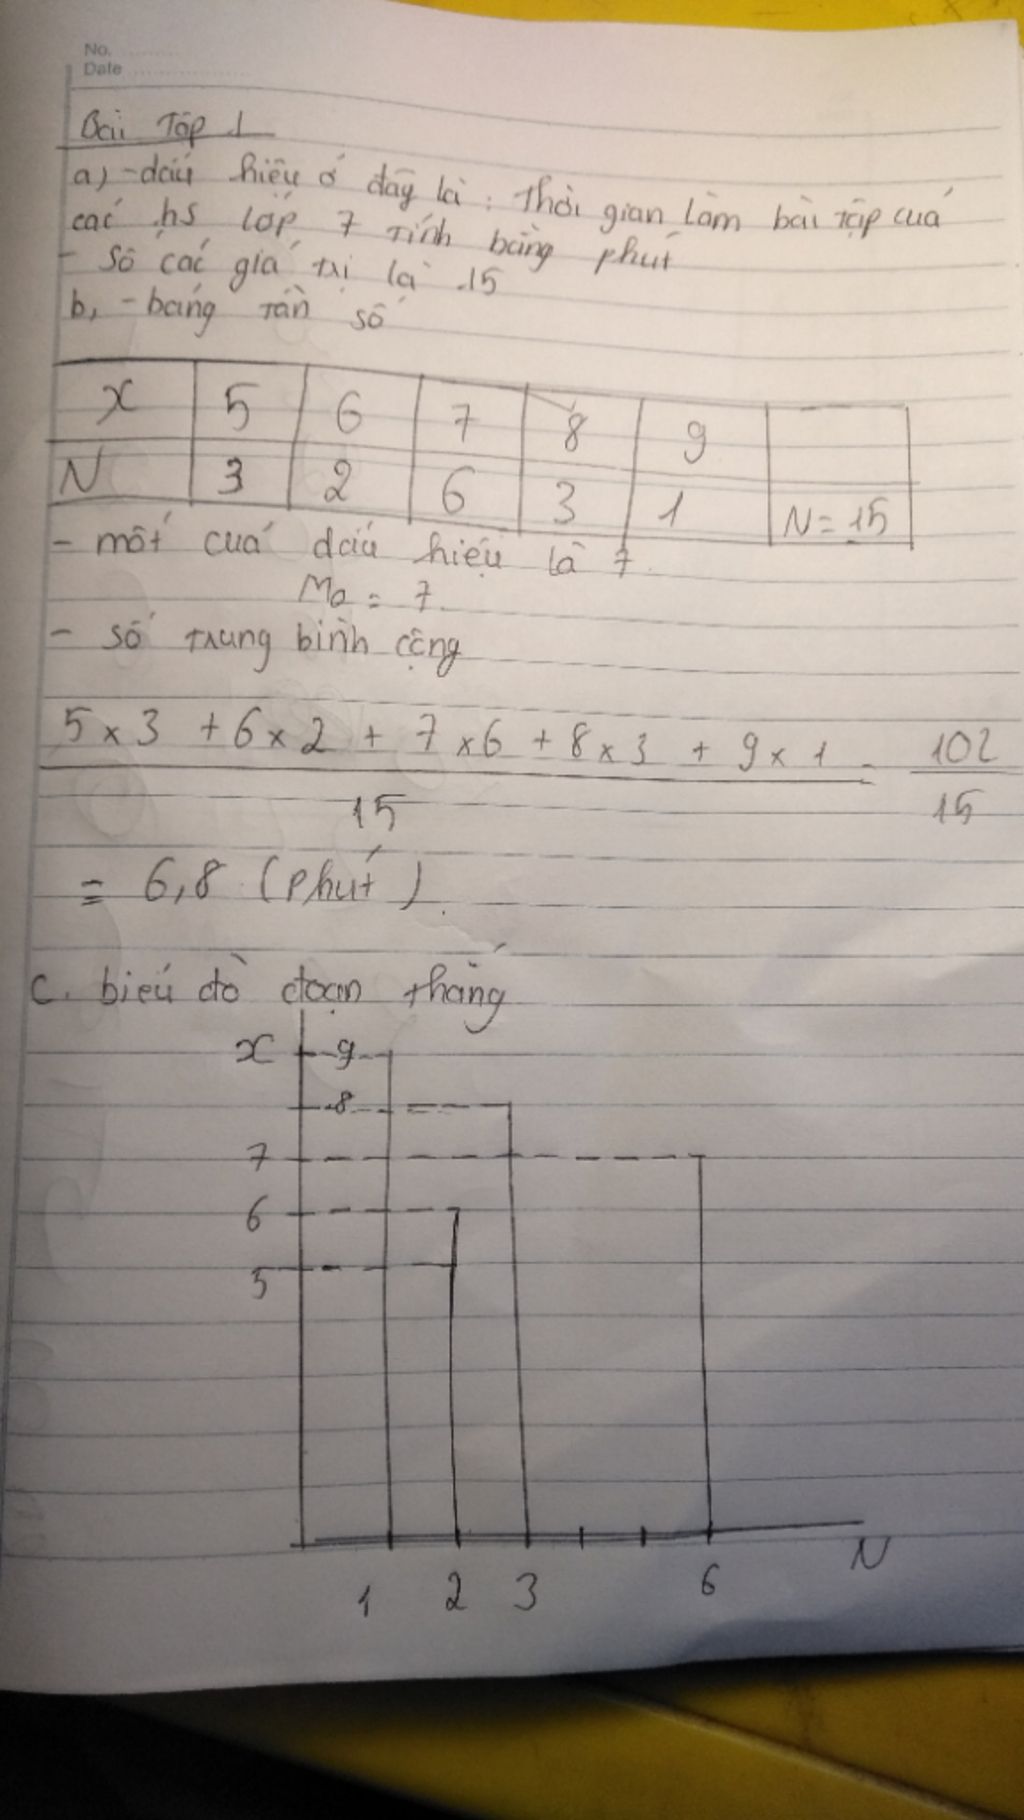 No.
Date
Bài Tập 1
a) - dấu hiệu ở đây là : Thời gian làm bài tập của
các hs lớp 7 tính bằng phút
- Số các giá trị là 15
b, - bảng tần số
x 5 6 7 8 9
N 3 2 6 3 1 N = 15
- mốt của dấu hiệu là 7.
Mo = 7.
- số trung bình cộng
5 x 3 + 6 x 2 + 7 x 6 + 8 x 3 + 9 x 1 = 102
15 15
= 6,8 (phút).
c. biểu đồ đoạn thẳng
x 9
8
7
6
5
N
1 2 3 6